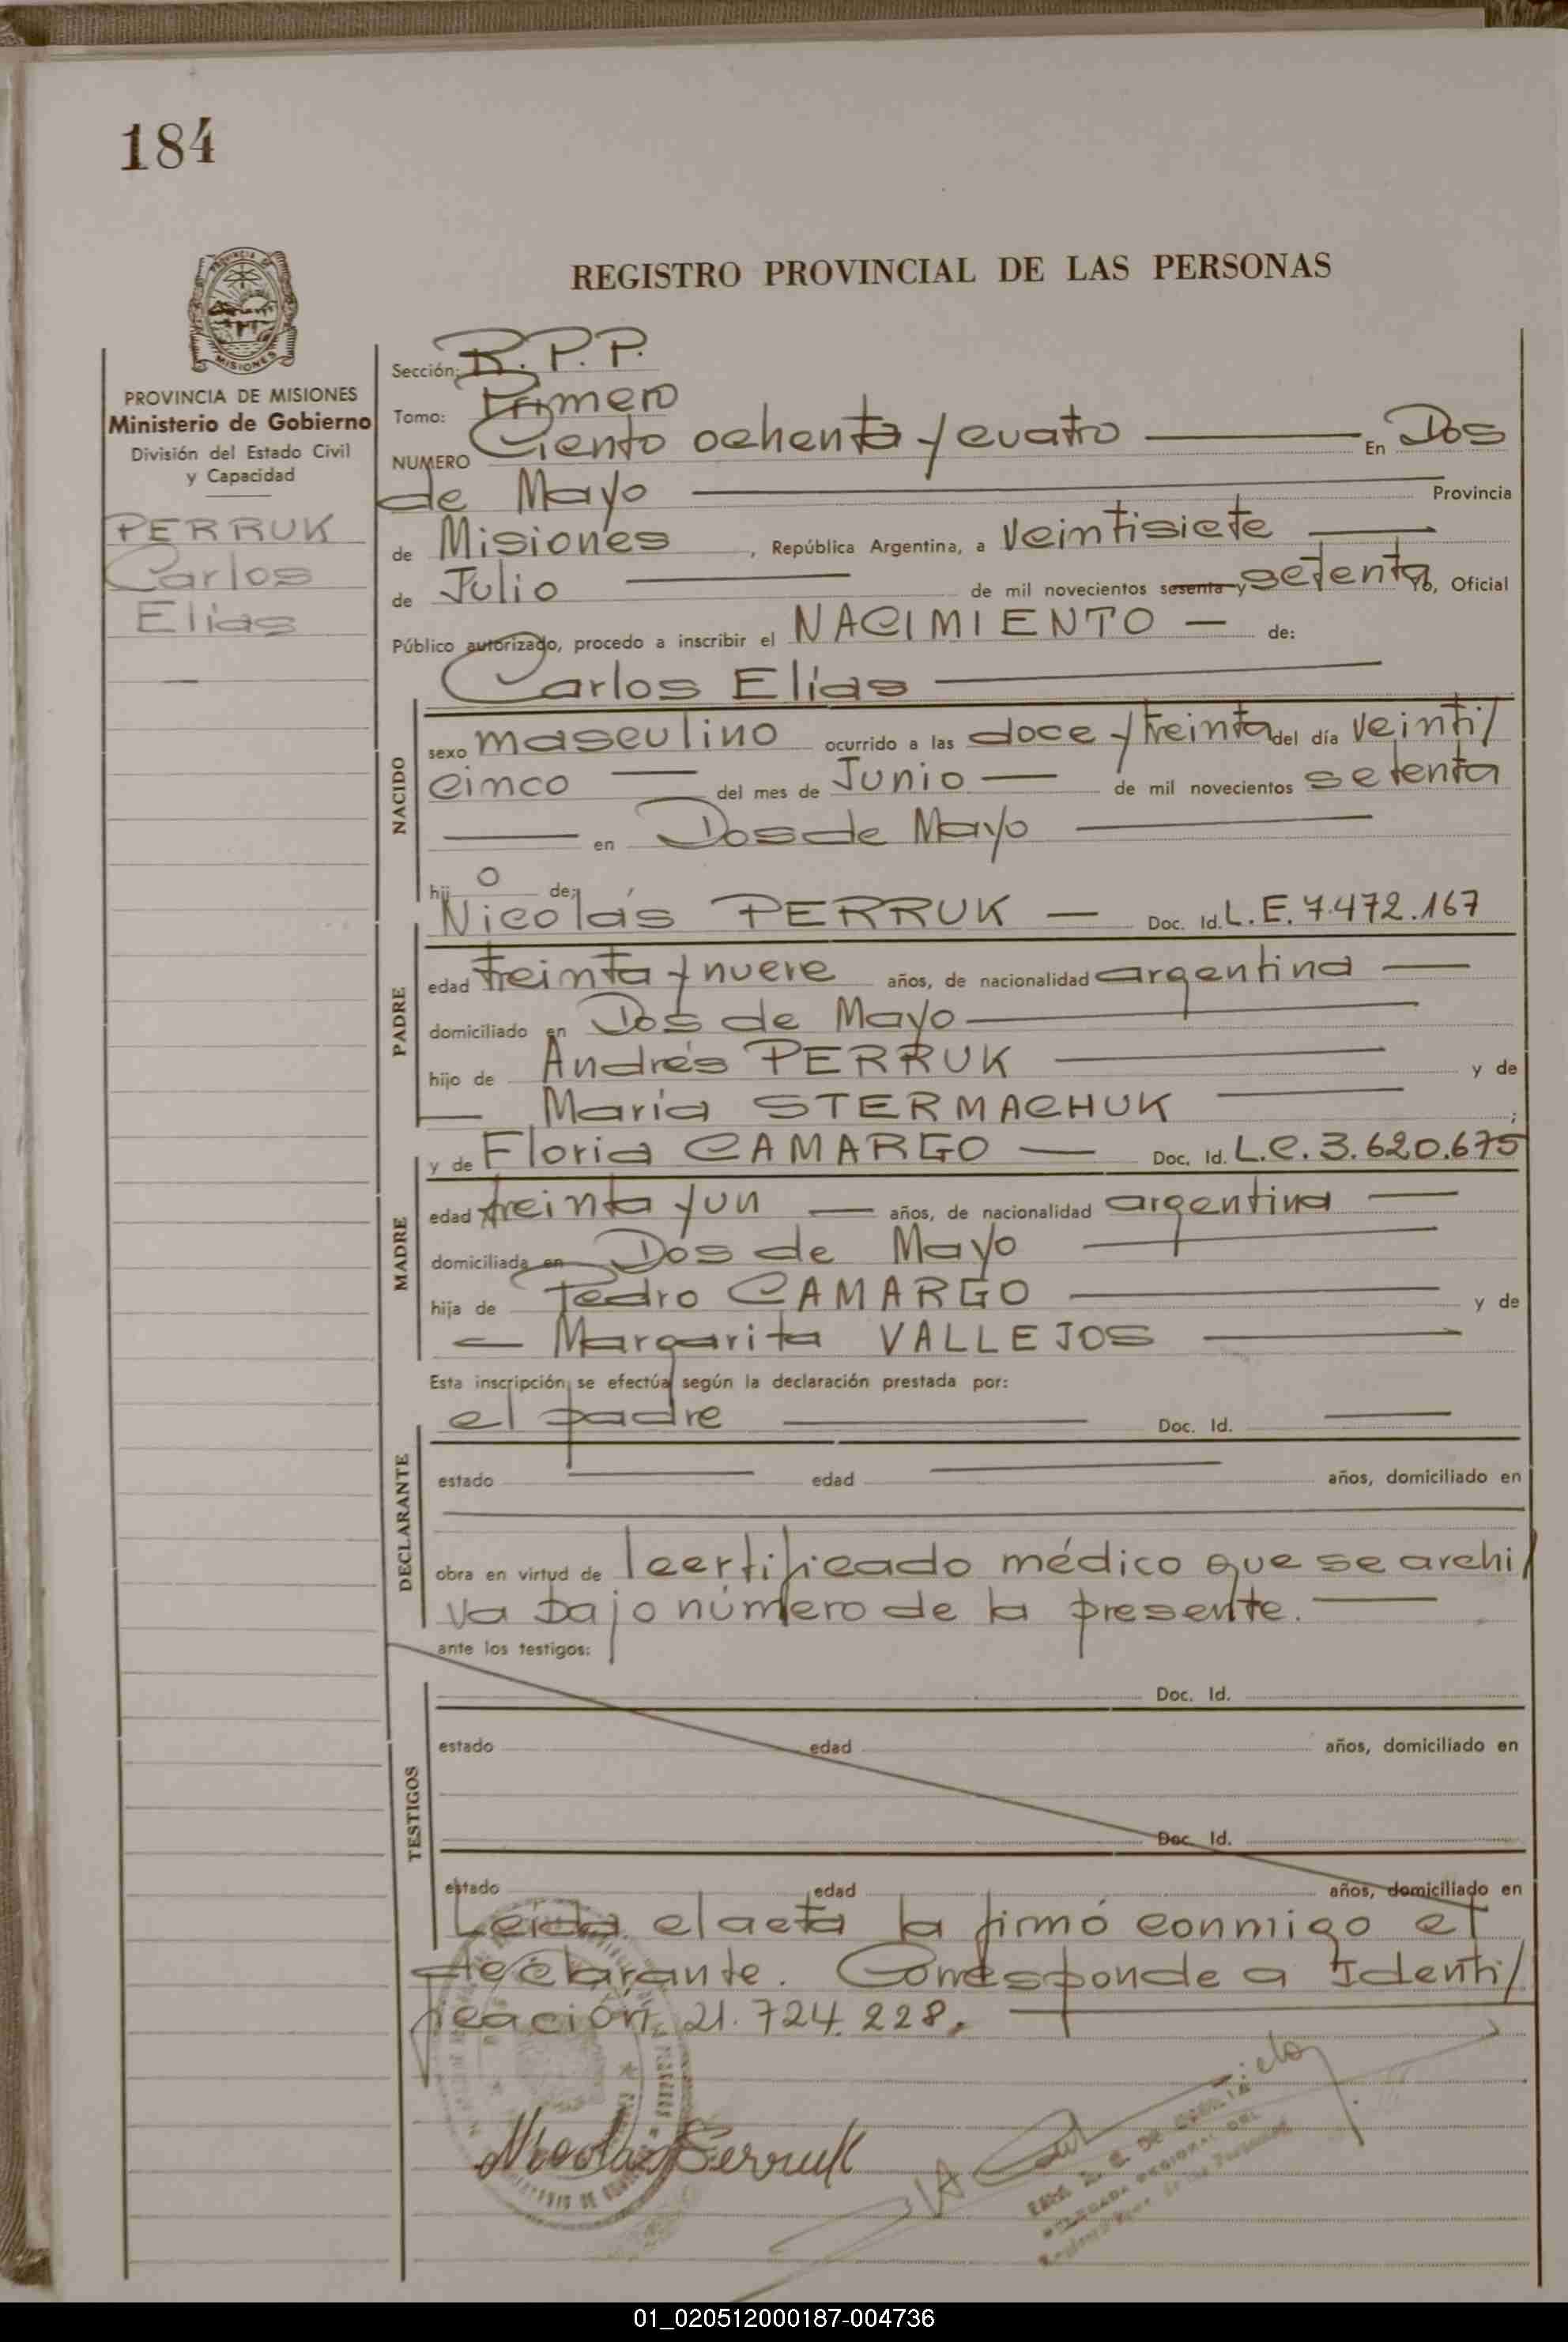 184
REGISTRO PROVINCIAL DE LAS PERSONAS
PROVINCIA DE MISIONES
Ministerio de Gobierno
División del Estado Civil
y Capacidad
PERRUK
Carlos
Elías
Sección: R.P.P.
Tomo: Primero
NUMERO Ciento ochenta y cuatro En Dos
de Mayo Provincia
de Misiones, República Argentina, a veintisiete
de Julio de mil novecientos sesenta y setenta Yo, Oficial
Público autorizado, procedo a inscribir el NACIMIENTO — de:
Carlos Elías
NACIDO
sexo masculino ocurrido a las doce y treinta del día veinti/
cinco del mes de Junio — de mil novecientos setenta
en Dos de Mayo
hijo de:
Nicolás PERRUK — Doc. Id. L.E. 7.472.167
PADRE
edad treinta y nueve años, de nacionalidad argentina —
domiciliado en Dos de Mayo
hijo de Andrés PERRUK y de
María STERMACHUK ;
y de Floria CAMARGO — Doc. Id. L.C. 3.620.675
MADRE
edad treinta y un — años, de nacionalidad argentina —
domiciliada en Dos de Mayo
hija de Pedro CAMARGO y de
— Margarita VALLEJOS
Esta inscripción se efectúa según la declaración prestada por:
el padre Doc. Id.
DECLARANTE
estado edad años, domiciliado en
obra en virtud de certificado médico que se archi/
va bajo número de la presente.
ante los testigos:
Doc. Id.
TESTIGOS
estado edad años, domiciliado en
Doc. Id.
estado edad años, domiciliado en
Leída el acta la firmó conmigo el
declarante. Corresponde a Identi/
ficación 21.724.228.
Nicolas Perruk
01_020512000187-004736